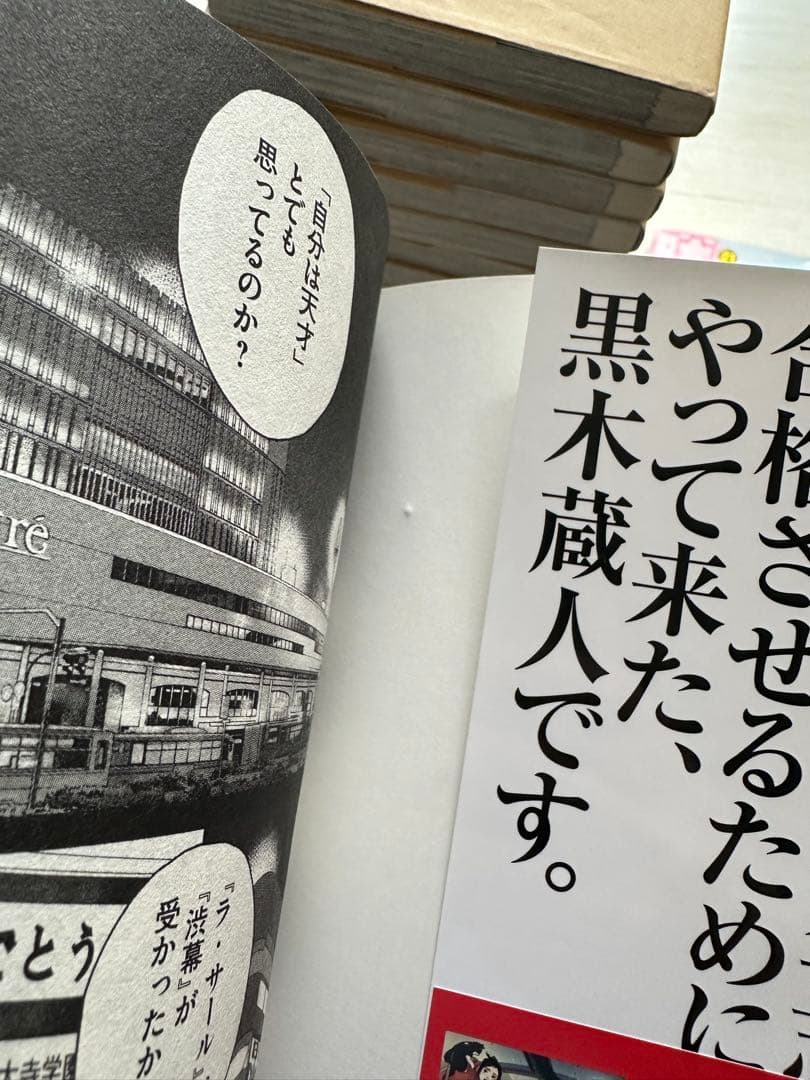 「自分は天才」
とでも
思ってるのか？
『ラ・サール』
『渋幕』が
受かったか
ré
ごとう
大寺学園
合格させるために
やって来た、
黒木蔵人です。